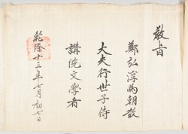 教旨
鄭弘淳爲朝散
大夫行世子侍
講院文學者
乾隆十三年七月初七日